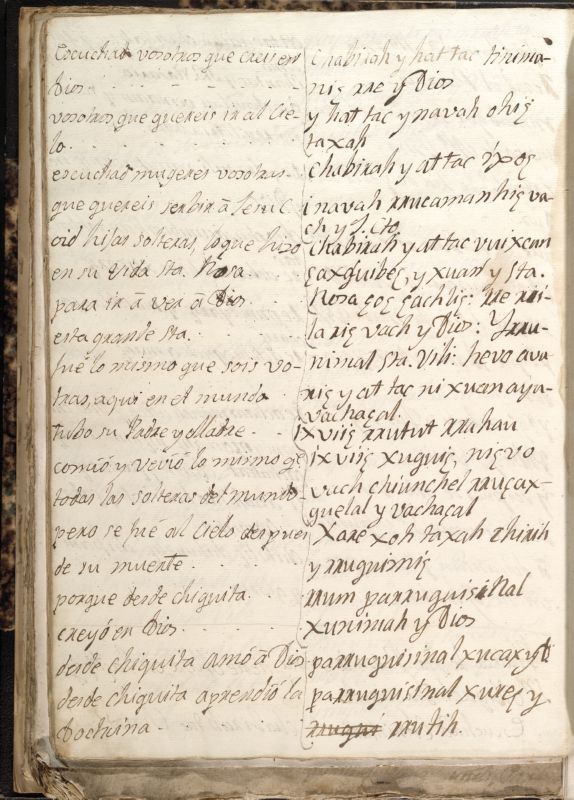 Escuchad vosotros que creis en
Dios.
vosotros que quereis ir al Cie-
lo.
escuchad mugeres vosotras
que quereis serbir â Jesu C
oid hijas solteras, lo que hizo
en su vida Sta. Rosa
para ir â ver â Dios
esta grande Sta.
fué lo mismo que sois vo-
tras, aqui en el mundo
tubo su Padre y Madre
comió y vevió lo mismo qe
todas las solteras del mundo
pero se fué al Cielo despues
de su muerte.
porque desde chiquita
creyó en Dios
desde chiquita amó â Dios
desde chiquita aprendió la
Doctrina
Chabirah y hat tac tinima-
nis rre y Dios
y hat tac y navah ohis
taxah
Chabirah y at tac
i navah rrucaman his va-
ch y J. Cto.
Chabirah y at tac
y xuan y Sta.
Rosa
la ris vach y Dios:
nimal Sta. hevo ava
ris y at tac ni xuan aya-
vachaçal.
Ixviis rrutut rrahau
Ixviis xuguis, nis vo
vach chiunchel rruçax-
guelal y vachaçal
Xare xoh taxah chirih
y rruguimis
rrum parruguisinal
xunimah y Dios
parruguisinal
parruguisinal y
rrutih.